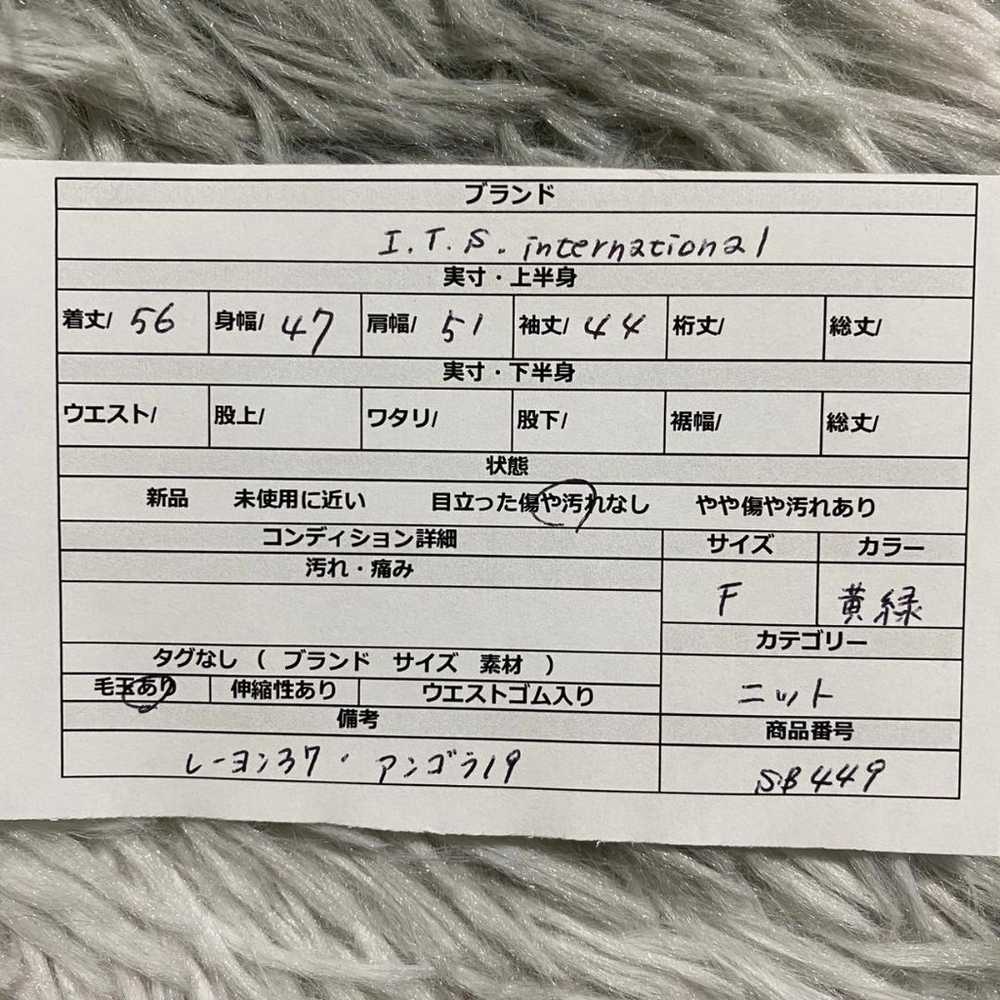 ブランド
I.T.S. international
実寸・上半身
着丈/ 56 身幅/ 47 肩幅/ 51 袖丈/ 44 裄丈/ 総丈/
実寸・下半身
ウエスト/ 股上/ ワタリ/ 股下/ 裾幅/ 総丈/
状態
新品 未使用に近い 目立った傷や汚れなし やや傷や汚れあり
コンディション詳細 サイズ カラー
汚れ・痛み
F 黄緑
カテゴリー
タグなし ( ブランド サイズ 素材 )
毛玉あり 伸縮性あり ウエストゴム入り ニット
備考 商品番号
レーヨン37・アンゴラ19 SB449